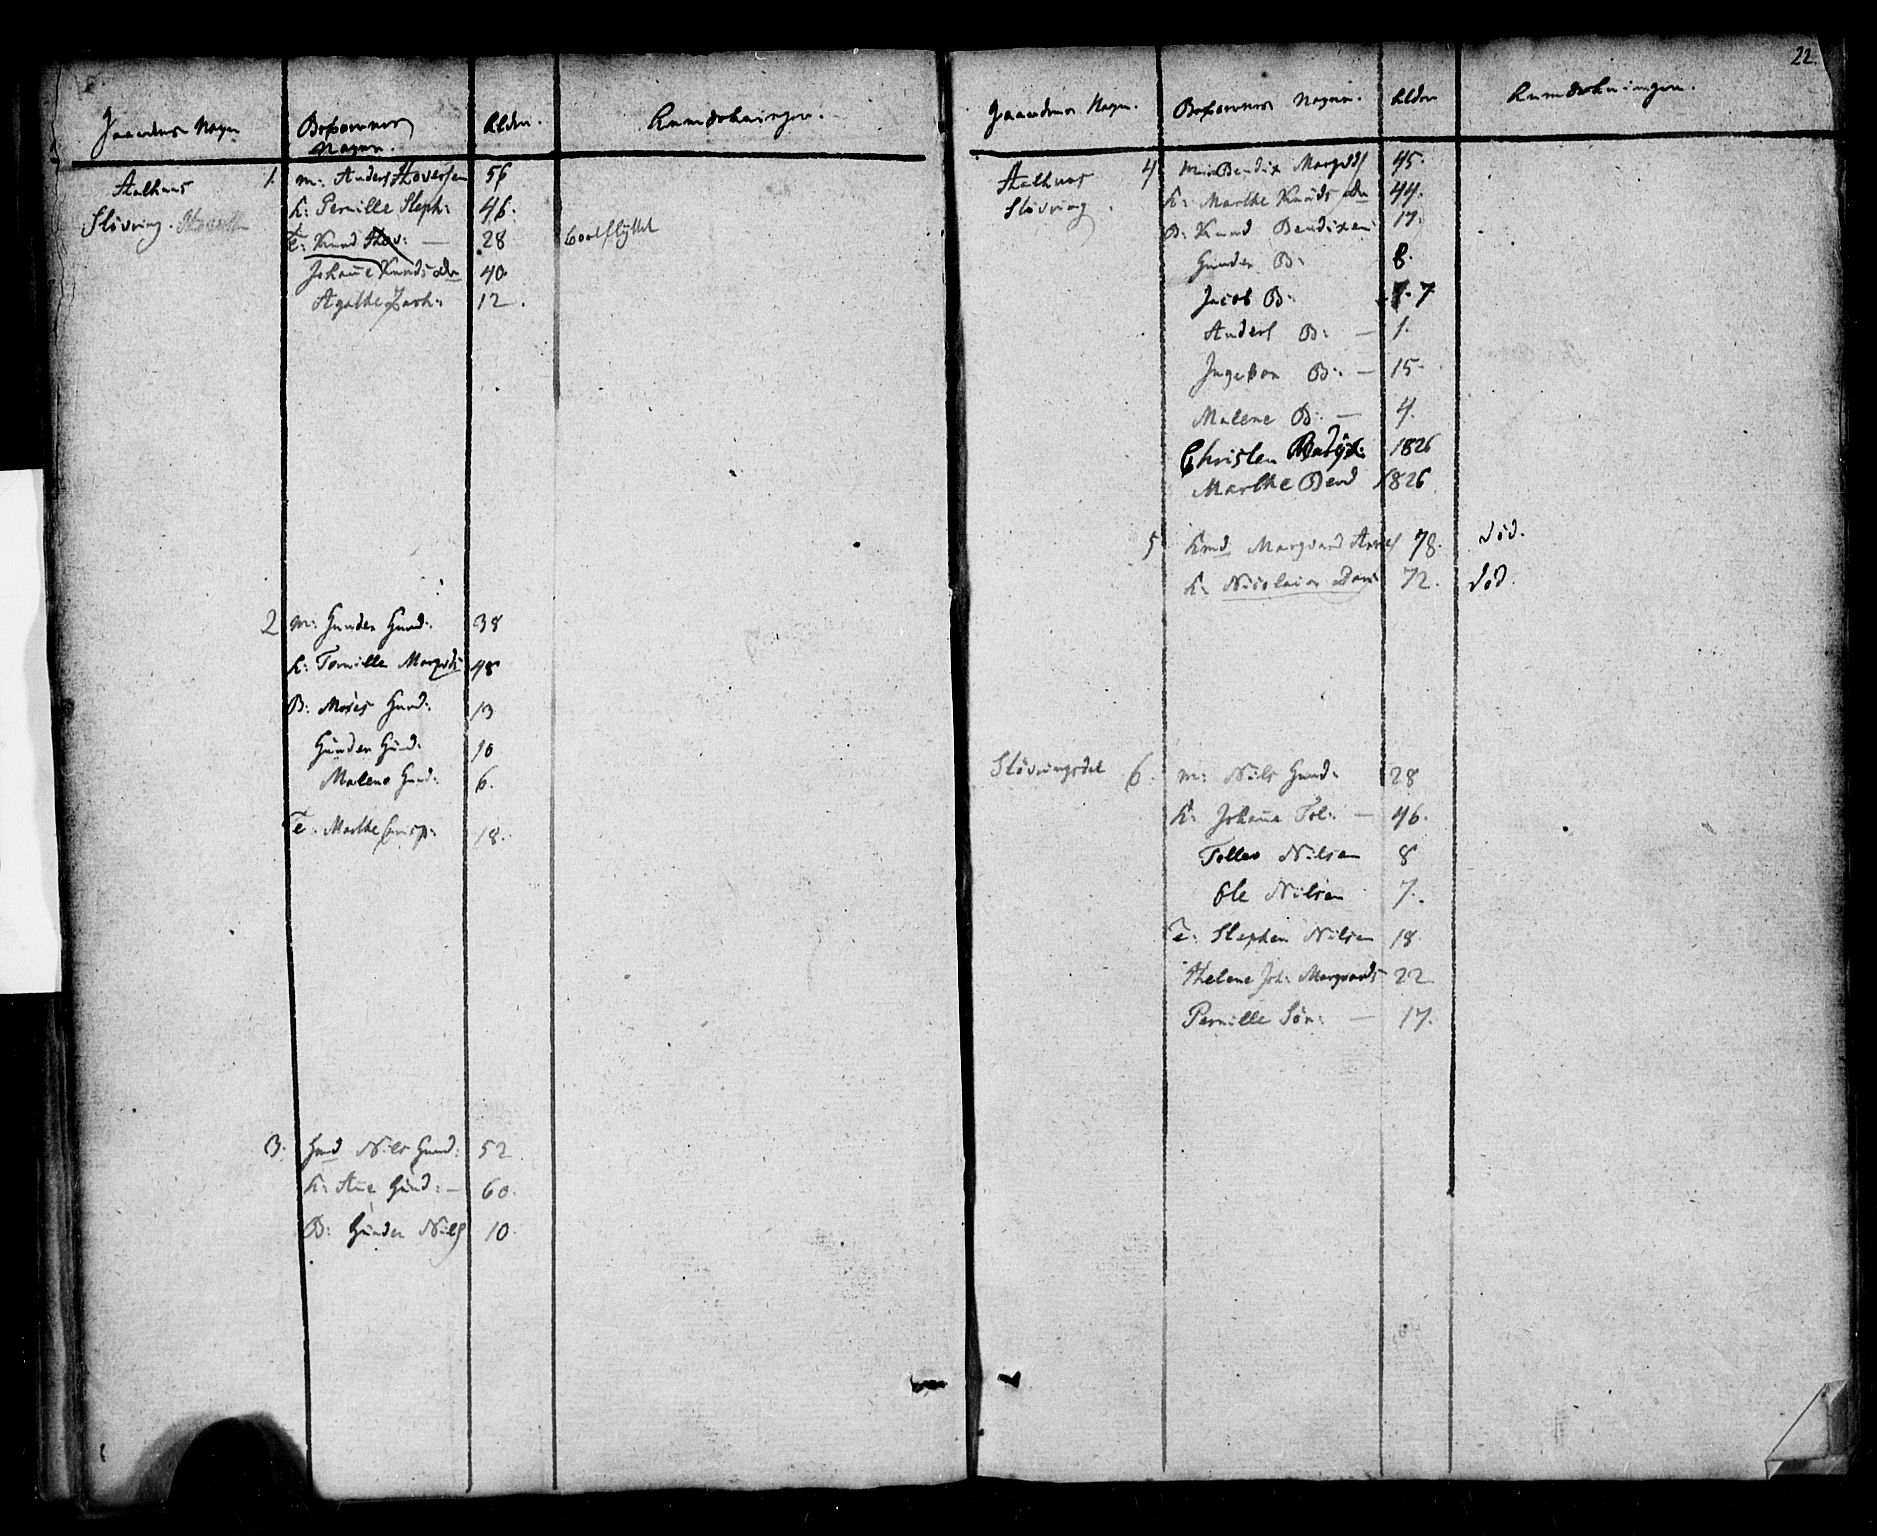 Gaardenes Navn
Beboernes Navne.
Alder.
Anmerkninger.
Aalhuus
Slövring.
1. M: Anders Thoversen 56
K: Pernille Steph: 46.
T: Knud Thov: — 28 bortflyttet
Johanne Knudsdtr 40.
Agathe Zach: 12.
2 M: Gunder Gund: 38
K: Pernille Margvds 48
B: Moses Gund: 13
Gunder Gund: 10
Malene Gund: 6.
T: Marthe 18.
3. Gmd Nils Gund: 52
K: Ane Gund: — 60.
B: Gunder Nils 10
22.
Gaardenes Navn.
Beboernes Navne.
Alder
Anmerkninger.
Aalhuus
Slövring.
4 M: Bendix Margvds 45.
K: Marthe Knudsdtr 44.
B: Knud Bendixen 17.
Gunder B: 8.
Jacob B: 7
Anders B: — 1.
Ingebor B: — 15.
Malene B: — 4.
Christen 1826
Marthe Bend 1826
5 Kmd Margvard 78. död.
K: Nicolai 72. död.
Slövringsdal
6. M: Nils Gund: 28
K: Johanne Tol: — 46.
Tollev Nilsen 8
Ole Nilsen 7.
T: Stephen Nilsen 18.
Thelene Joh: Margvards 22
Pernille Sön: — 17.